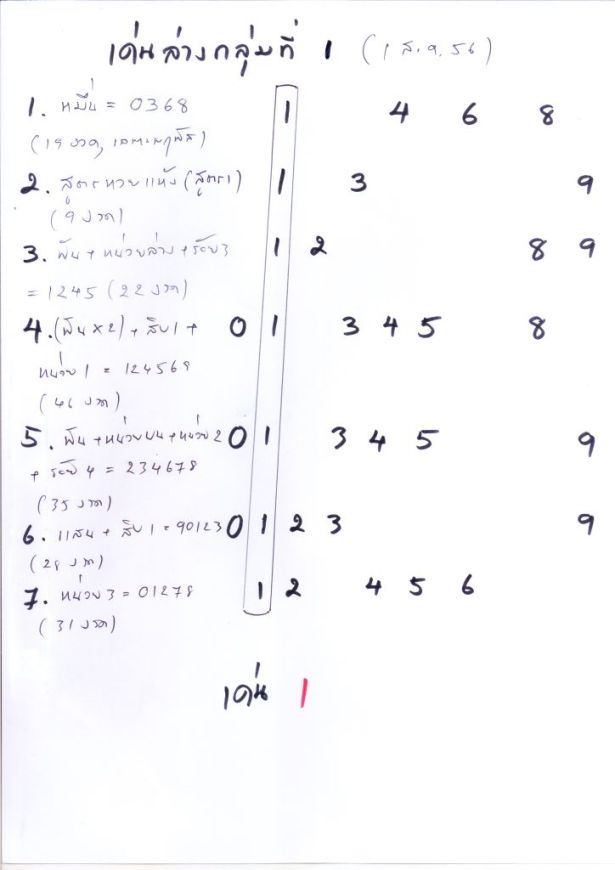 เด่นล่างกลุ่มที่ 1 (1 ส.ค. 56)
1. หมื่น = 0368 1 4 6 8
(19 งวด,
2. สูตรหวยแห้ง (สูตร1) 1 3 9
(9 งวด)
3. พัน + หน่วยล่าง + ร้อย3 1 2 8 9
= 1245 (22 งวด)
4. (พัน x 2) + สิบ1 + 0 1 3 4 5 8
หน่วย1 = 124569
(46 งวด)
5. พัน + หน่วยบน + หน่วย2 0 1 3 4 5 9
+ ร้อย4 = 234678
(35 งวด)
6. แสน + สิบ1 = 90123 0 1 2 3 9
(28 งวด)
7. หน่วย3 = 01278 1 2 4 5 6
(31 งวด)
เด่น 1